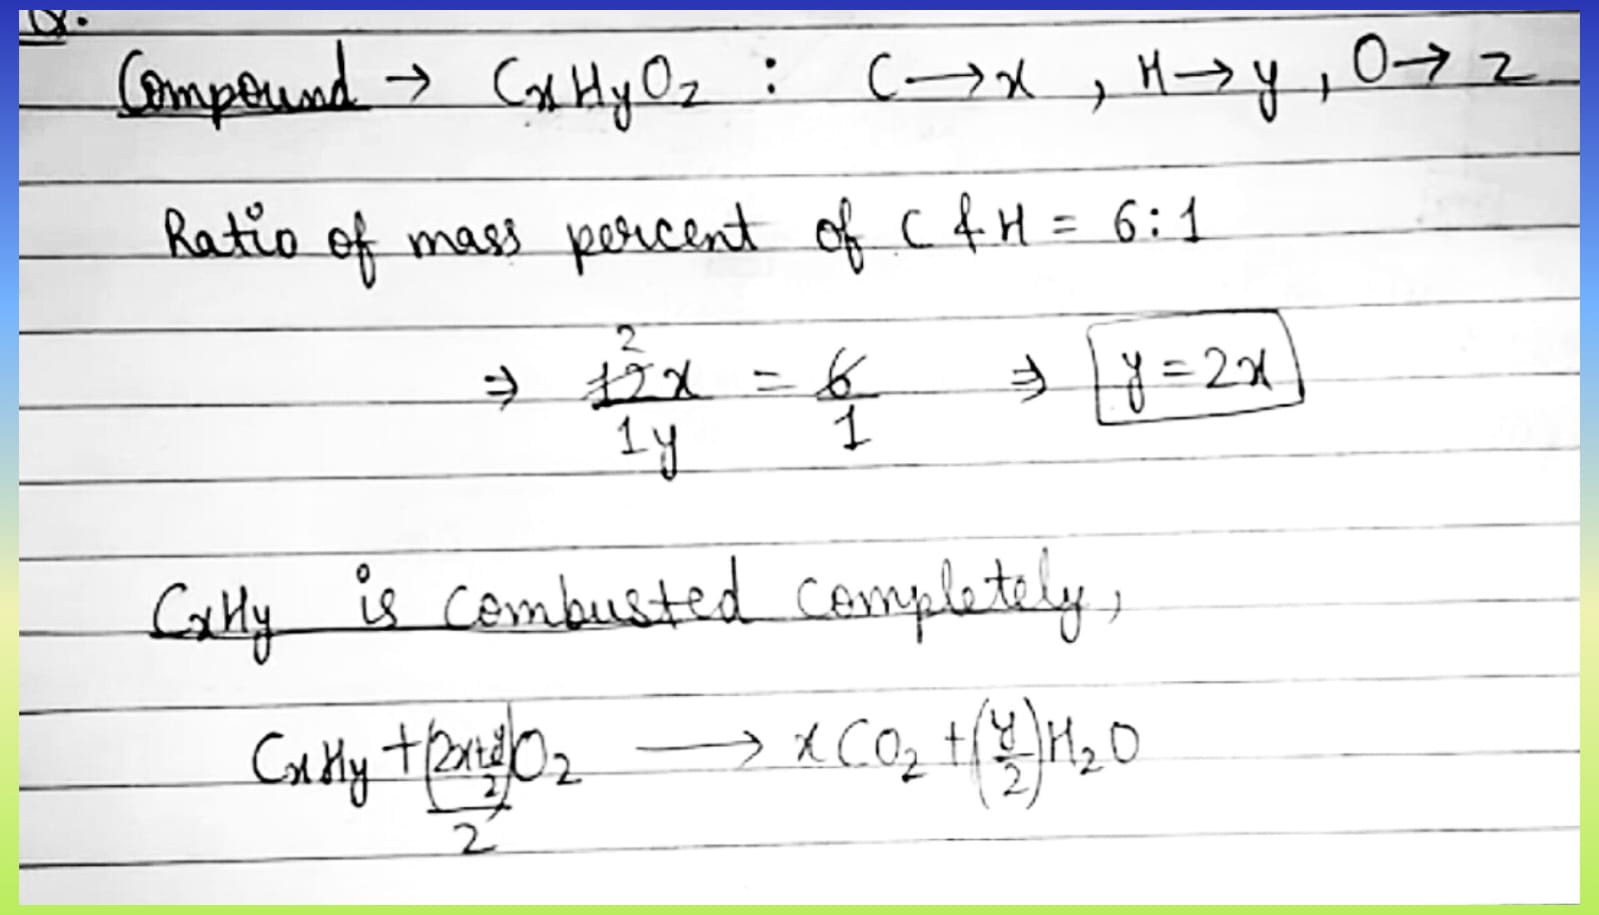 Q.
Compound → CxHyOz : C→x , H→y , O→z
Ratio of mass percent of C & H = 6:1
⇒ 12x/1y = 6/1 ⇒ y = 2x
2
CxHy is combusted completely,
CxHy + (2x+y/2)/2 O2 → xCO2 + (y/2)H2O